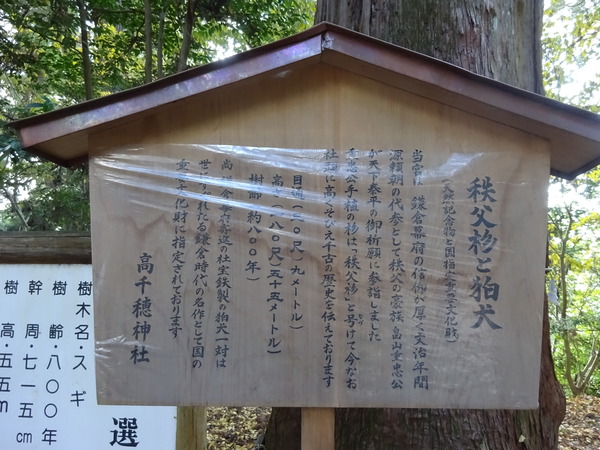 秩父杉と狛犬
(天然記念物と国指定重要文化財)
当宮は 鎌倉幕府の信仰が厚く文治年間
源頼朝の代参として秩父の家族 畠山重忠公
が天下泰平の御祈願に参詣しました
重忠公手植の杉は「秩父杉」と号けて今なお
社頭に高くそびえ千古の歴史を伝えております
目通(三〇尺)九メートル)
高さ(一八〇尺)五十五メートル)
樹齢(約八〇〇年)
尚 社宝鉄製の狛犬一対は
世にられたる鎌倉時代の名作として国の
重要文化財に指定されております
高千穂神社
樹木名・スギ
樹 齢・八〇〇年
幹 周 七一五㎝
樹 高・五五m
選